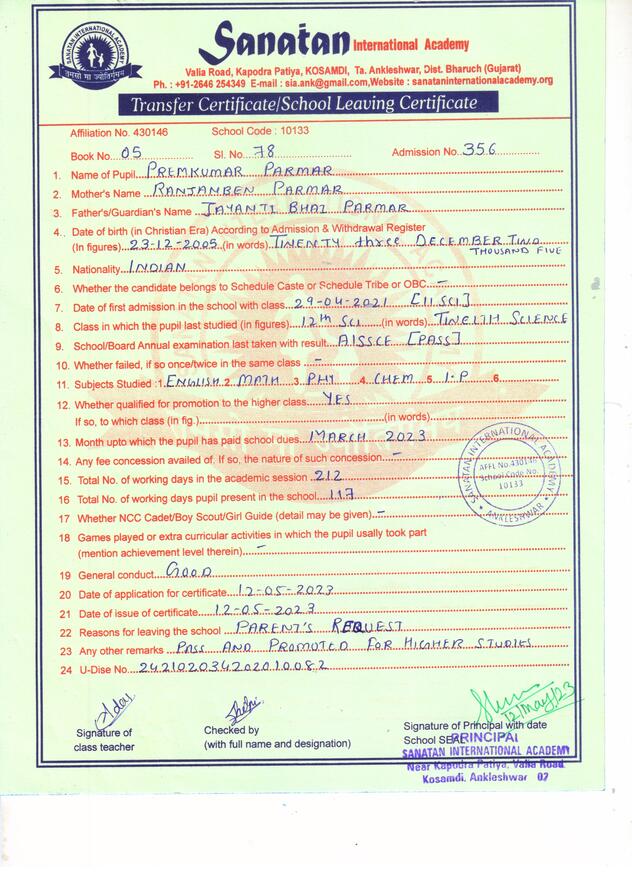 SANATAN INTERNATIONAL ACADEMY
तमसो मा ज्योतिर्गमय
Sanatan International Academy
Valia Road, Kapodra Patiya, KOSAMDI, Ta. Ankleshwar, Dist. Bharuch (Gujarat)
Ph. : +91-2646 254349 E-mail : sia.ank@gmail.com,Website : sanataninternationalacademy.org
Transfer Certificate/School Leaving Certificate
Affiliation No. 430146 School Code : 10133
Book No. 05 Sl. No. 78 Admission No. 356
1. Name of Pupil PREMKUMAR PARMAR
2. Mother's Name RANJANBEN PARMAR
3. Father's/Guardian's Name JAYANTI BHAI PARMAR
4. Date of birth (in Christian Era) According to Admission & Withdrawal Register
(In figures) 23-12-2005 (in words) TWENTY three DECEMBER TWO
THOUSAND FIVE
5. Nationality INDIAN
6. Whether the candidate belongs to Schedule Caste or Schedule Tribe or OBC –
7. Date of first admission in the school with class 29-04-2021 [11 SCI]
8. Class in which the pupil last studied (in figures) 12th SCI (in words) TWELTH SCIENCE
9. School/Board Annual examination last taken with result AISSCE [PASS]
10. Whether failed, if so once/twice in the same class –
11. Subjects Studied :1. ENGLISH 2. MATH 3. PHY 4. CHEM 5. I.P 6.
12. Whether qualified for promotion to the higher class YES
If so, to which class (in fig.) (in words)
13. Month upto which the pupil has paid school dues MARCH 2023
14. Any fee concession availed of. If so, the nature of such concession –
15. Total No. of working days in the academic session 212
16 Total No. of working days pupil present in the school 117
17 Whether NCC Cadet/Boy Scout/Girl Guide (detail may be given) –
18 Games played or extra curricular activities in which the pupil usally took part
(mention achievement level therein) –
19 General conduct GOOD
20 Date of application for certificate 12-05-2023
21 Date of issue of certificate 12-05-2023
22 Reasons for leaving the school PARENT'S REQUEST
23 Any other remarks PASS AND PROMOTED FOR HIGHER STUDIES
24 U-Dise No. 242102034202010082
SANATAN INTERNATIONAL ACADEMY
AFFL No.430146
School Code No.
10133
ANKLESHWAR
12/May/23
Signature of
class teacher
Checked by
(with full name and designation)
Signature of Principal with date
School SEAL
PRINCIPAL
SANATAN INTERNATIONAL ACADEMY
Near Kapodra Patiya, Valia Road
Kosamdi, Ankleshwar 02